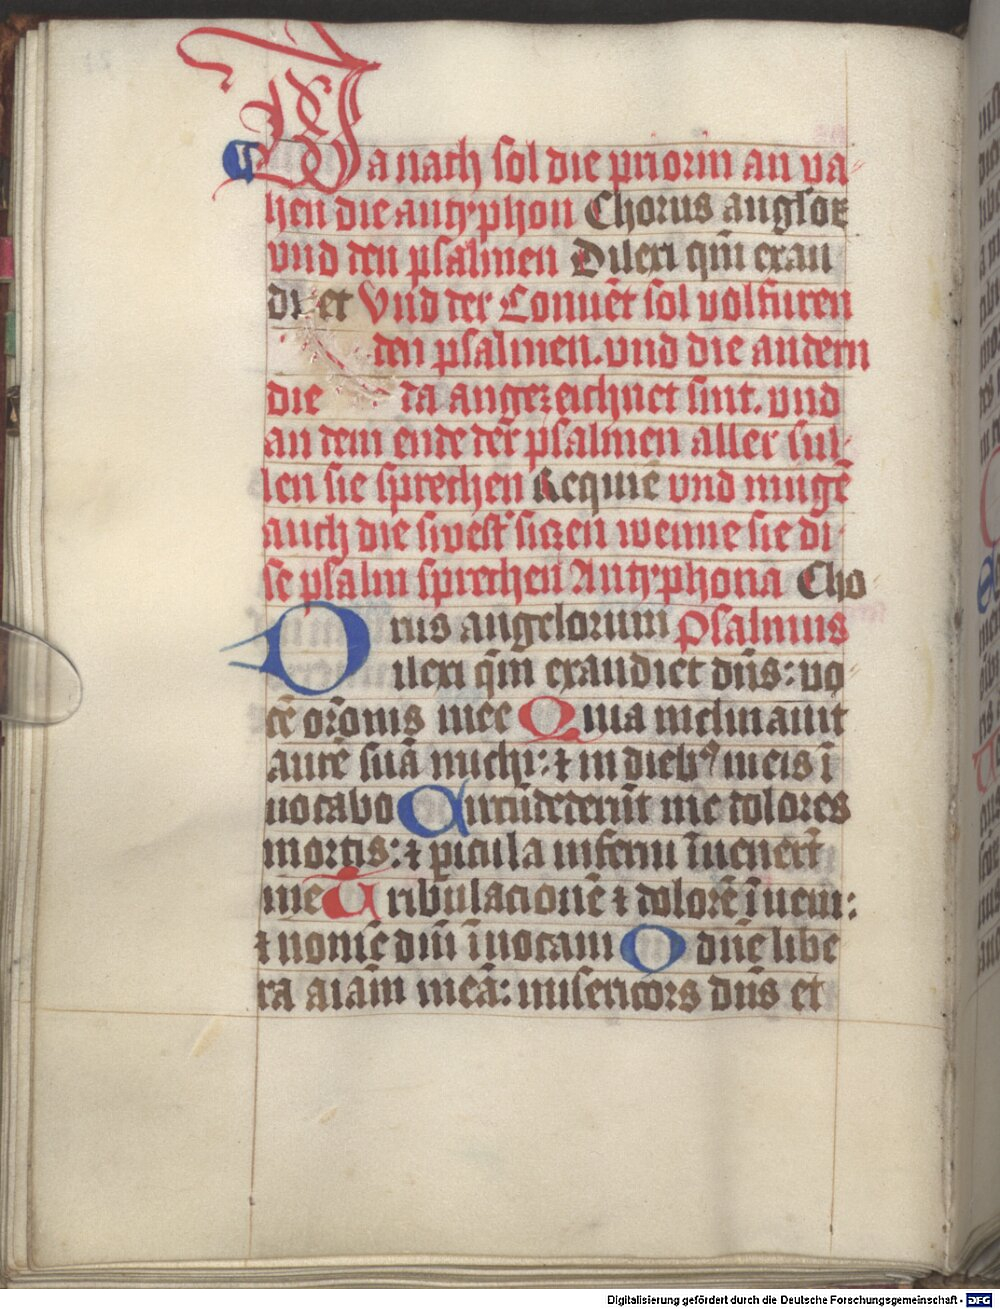 Da nach sol die priorin an va
hen die antyphon Chorus anglor
vnd den psalmen Dilexi qm̄ exau
di et Vnd der Conuēt sol volfuren
den psalmen. vnd die andern
die da angezeichnet sint. vnd
an dem ende der psalmen aller sul-
len sie sprechen Requiē vnd mugē
auch die swest' sitzen wenne sie di-
se psalm sprechen Antyphona Cho
rus angelorum Psalmus
Dilexi qm̄ exaudiet dn̄s: vo-
cē or̄onis mee Quia inclinauit
aurē suā michi: ⁊ in dieb⁹ meis ī
uocabo Circūdederūt me dolores
mortis: ⁊ picula inferni īuenert̄
me Tribulacionē ⁊ dolorē īueni:
⁊ nomīe dn̄i īuocaui O dn̄e libe
ra aīam meā: misericors dn̄s et
Digitalisierung gefördert durch die Deutsche Forschungsgemeinschaft - DFG